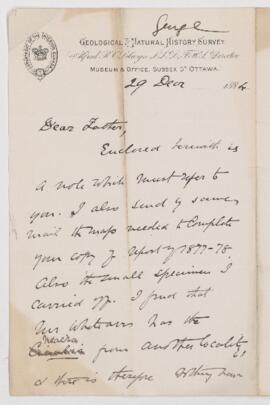 GEOLOGICAL & NATURAL HISTORY SURVEY
Alfred R.C. Selwyn L.L.D. F.R.S. Director
MUSEUM & OFFICE, SUSSEX ST OTTAWA.
29 Dec 1884
Dear Father,
Enclosed herewith is
a note which must refer to
you. I also send by same
mail the maps needed to complete
your copy of Report of 1877-78.
Also the small specimen I
carried off. I find that
Mr Whiteaves has the
from another locality,
& there is therefore nothing new